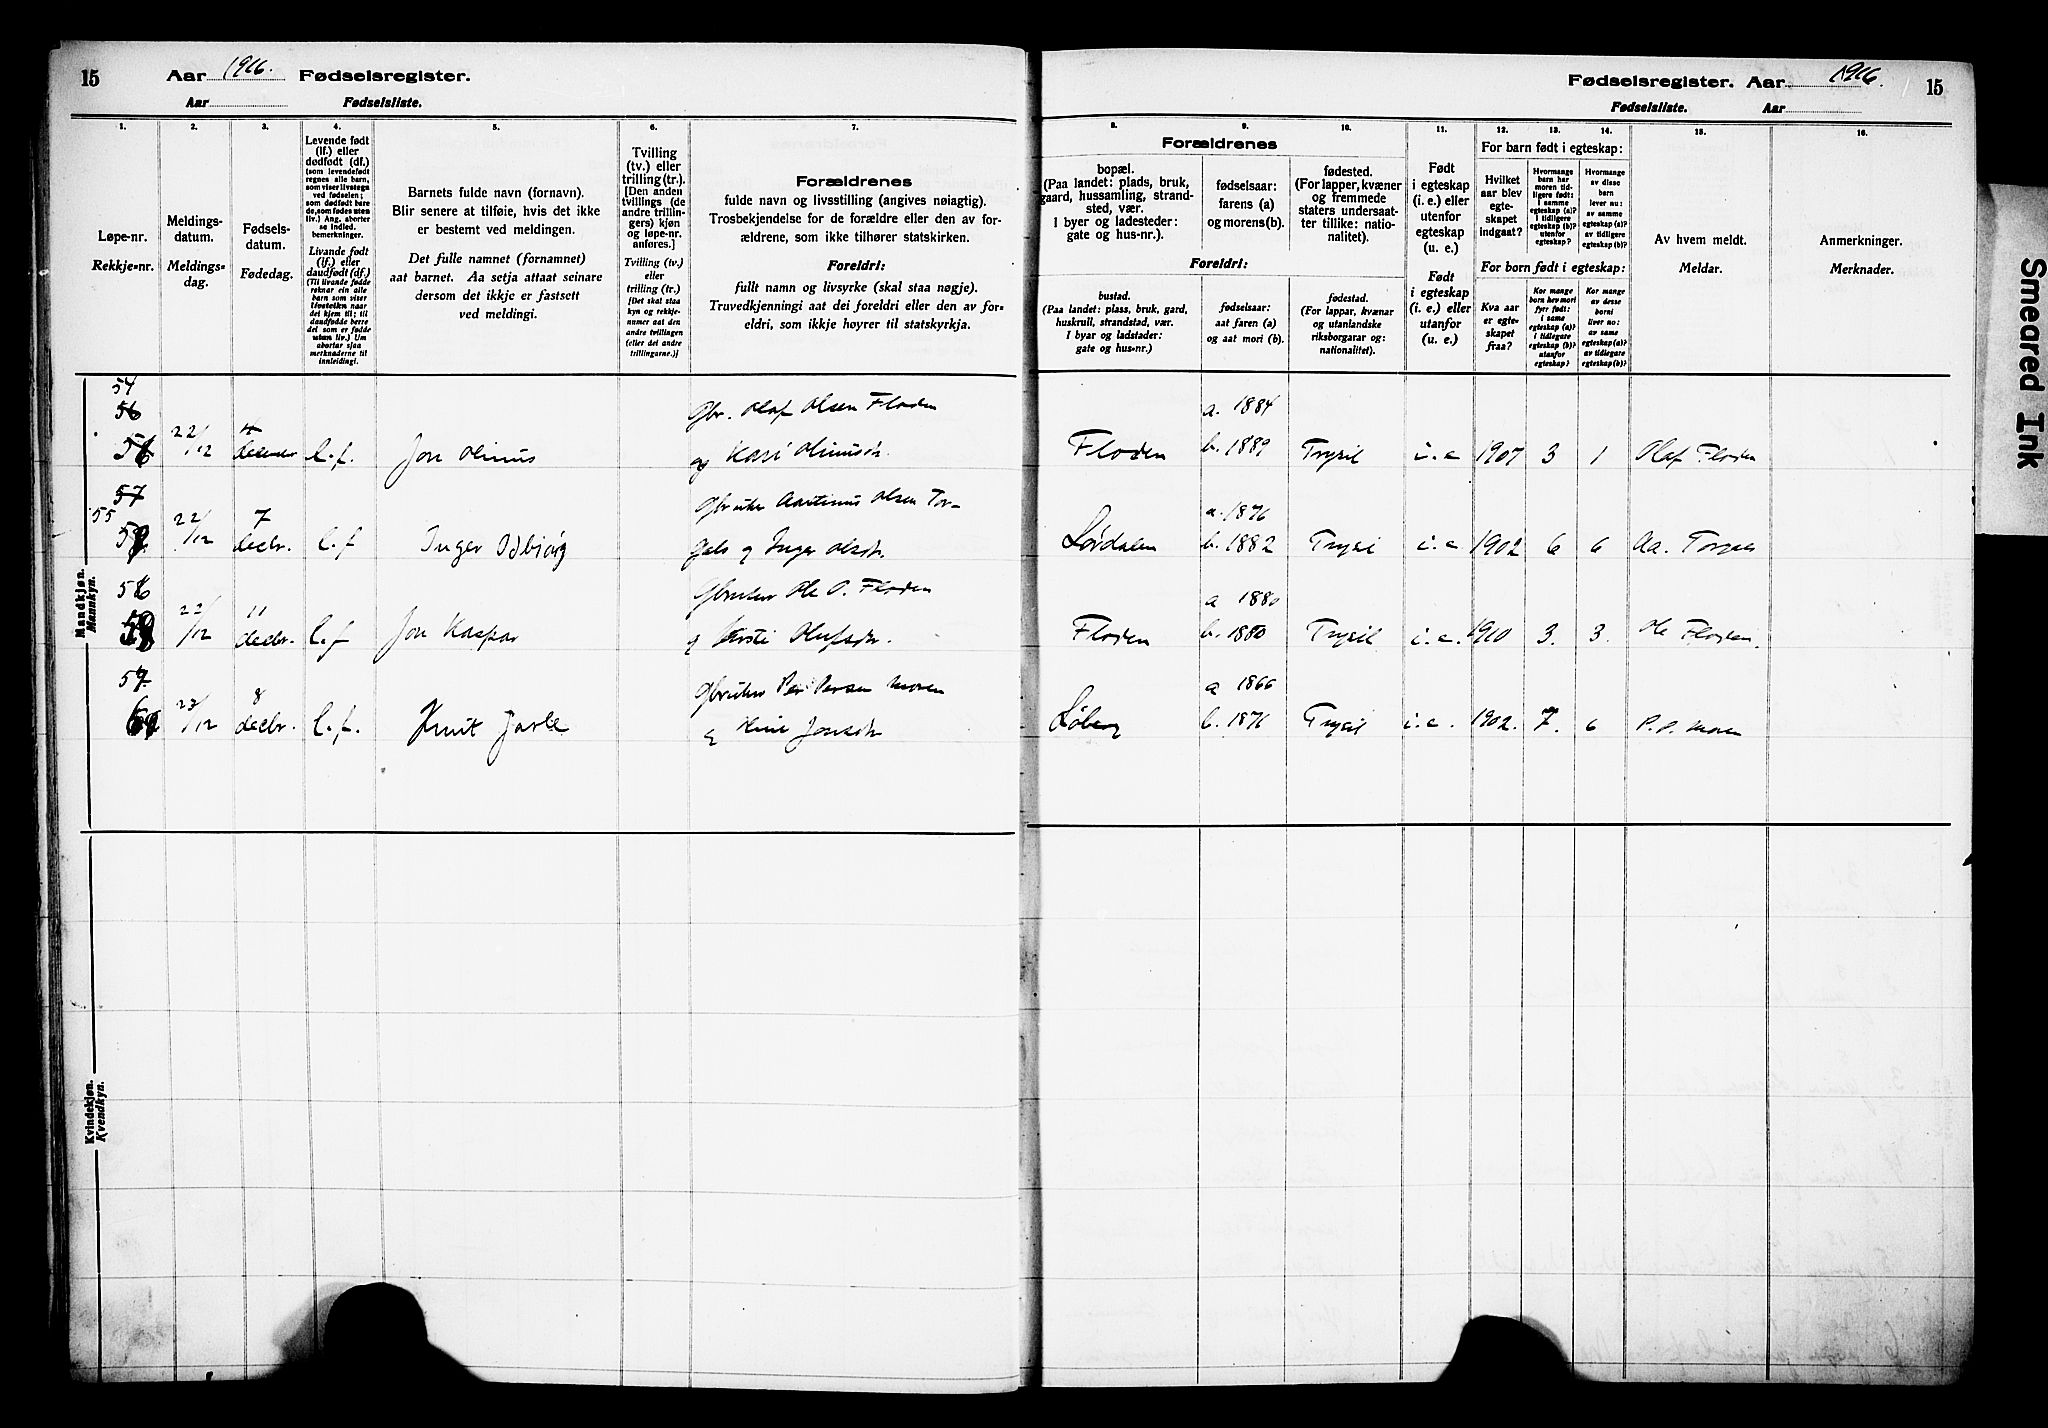 15 Aar 1916. Fødselsregister.
Aar Fødselsliste.
Fødselsregister. Aar 1916. 15
Fødselsliste. Aar
1. 2. 3. 4. 5. 6. 7.
8. 9. 10. 11. 12. 13. 14. 15. 16.
Løpe-nr.
Rekkje-nr.
Meldings-
datum.
Meldings-
dag.
Fødsels-
datum.
Fødedag.
Levende født
(lf.) eller
dødfødt (df.)
(som levendefødt
regnes alle barn,
som viser livstegn
ved fødselen;
som dødfødt bare
de, som fødes uten
liv.) Ang. aborter
se indled.
bemerkninger.
Livande født
(lf.) eller
daudfødt (df.)
(Til livande fødde
reknar ein alle
barn som viser
livsteikn naar
dei kjem til; til
daudfødde berre
dei som er fødde
utan liv.) Um
abortar sjaa
merknaderne til
innleiding!
Barnets fulde navn (fornavn).
Blir senere at tilføie, hvis det ikke
er bestemt ved meldingen.
Det fulle namnet (fornamnet)
aat barnet. Aa setja attaat seinare
dersom det ikkje er fastsett
ved meldingi.
Tvilling
(tv.) eller
trilling (tr.).
[Den anden
tvillings (de
andre trillin-
gers) kjøn
og løpe-nr.
anføres.]
Tvilling (tv.)
eller
trilling (tr.)
[Det skal staa
kyn og rekkje-
numer aat den
andre tvillingen
(eller dei andre
trillingarne.)]
Forældrenes
fulde navn og livsstilling (angives nøiagtig).
Trosbekjendelse for de forældre eller den av for-
ældrene, som ikke tilhører statskirken.
Foreldri:
fullt namn og livsyrke (skal staa nøgje).
Truvedkjenningi aat dei foreldri eller den av for-
eldri, som ikkje høyrer til statskyrkja.
Forældrenes
bopæl.
(Paa landet: plads, bruk,
gaard, hussamling, strand-
sted, vær.
I byer og ladesteder:
gate og hus-nr.).
fødselsaar:
farens (a)
og morens (b).
fødested.
(For lapper, kvæner
og fremmede
staters undersaat-
ter tillike: natio-
nalitet).
Foreldri:
bustad.
(Paa landet: plass, bruk, gard,
huskrull, strandstad, vær.
I byar og ladstader:
gate og hus-nr.)
fødselsaar:
aat faren (a)
og aat mori (b).
fødestad.
(For lappar, kvænar
og utanlandske
riksborgarar og:
nationalitet).
Født
i egteskap
(i. e.) eller
utenfor
egteskap
(u. e.)
Født
i egteskap
(i. e.) eller
utanfor
(u. e.)
For barn født i egteskap:
Hvilket
aar blev
egte-
skapet
indgaat?
Hvormange
barn har
moren tid-
ligere født:
i samme
egteskap (a)?
i tidligere
egteskap (b)?
utenfor
egteskap?
Hvormange
av disse
barn
lever nu:
av samme
egteskap (a)?
av tidligere
egteskap (b)?
For born født i egteskap:
Kva aar
er egte-
skapet
fraa?
Kor mange
born hev mori
fyrr født:
i same
egteskap (a)?
i tidlegare
egteskap (b)?
utanfor
egteskap?
Kor mange
av desse
borni
liver no:
av same
egteskap (a)?
av tidlegare
egteskap (b)?
Av hvem meldt.
Meldar.
Anmerkninger.
Merknader.
Mandkjøn.
Mannkyn.
54
56
22/12 4 decembr l.f. Jon Olinus
Gbr. Olaf Olsen Floden
og Kari Olinusdr.
Floden a. 1884 b. 1889 Trysil i.e 1907 3 1 Olaf Floden
57
55
22/12 7 decbr. l.f Inger Odbjørg
Gbruker Martinus Olsen Tor-
gals og Inger Olsdr.
Lørdalen a. 1876 b. 1882 Trysil i.e 1902 6 6
58
22/12 11 decbr. l.f Jon Kaspar
Gbruker Ole O. Floden
og Olufsdr.
Floden a 1880 b. 1880 Trysil i.e. 1910 3. 3. Ole Floden.
59.
23/12 8 decbr. l.f. Knut Jarle
Gbruker Per Persen Moren
og Jonsdr
Løberg a 1866 b. 1876 Trysil i.e. 1902. 7. 6 P.P. Moren
Kvindekjøn.
Kvendkyn.
Smeared Ink